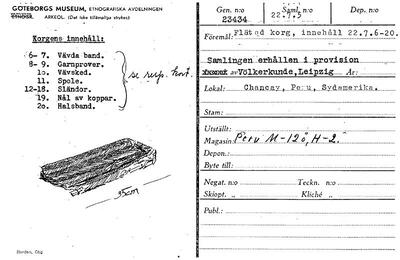 GÖTEBORGS MUSEUM, ETNOGRAFISKA AVDELNINGEN
ARKEOL. (Det icke tillämpliga strykes)
Korgens innehåll:
6- 7. Vävda band.
8- 9. Garnprover.
10. Vävsked.
11. Spole.
12-18. Sländor.
19. Nål av koppar.
20. Halsband.
se resp. kort.
35cm
Gen. n:o
23434
Saml. n:o
22.7.5
Dep. n:o
Föremål: Flätad korg, innehåll 22.7.6-20.
Samlingen erhållen i provision
av Völkerkunde, Leipzig År:
Lokal: Chancay, Peru, Sydamerika.
Stam:
Utställt:
Magasin: Peru M-120, H-2.
Depon.:
Byte till:
Negat. n:o Teckn. n:o
Skiopt. „ Kliché „
Publ.: